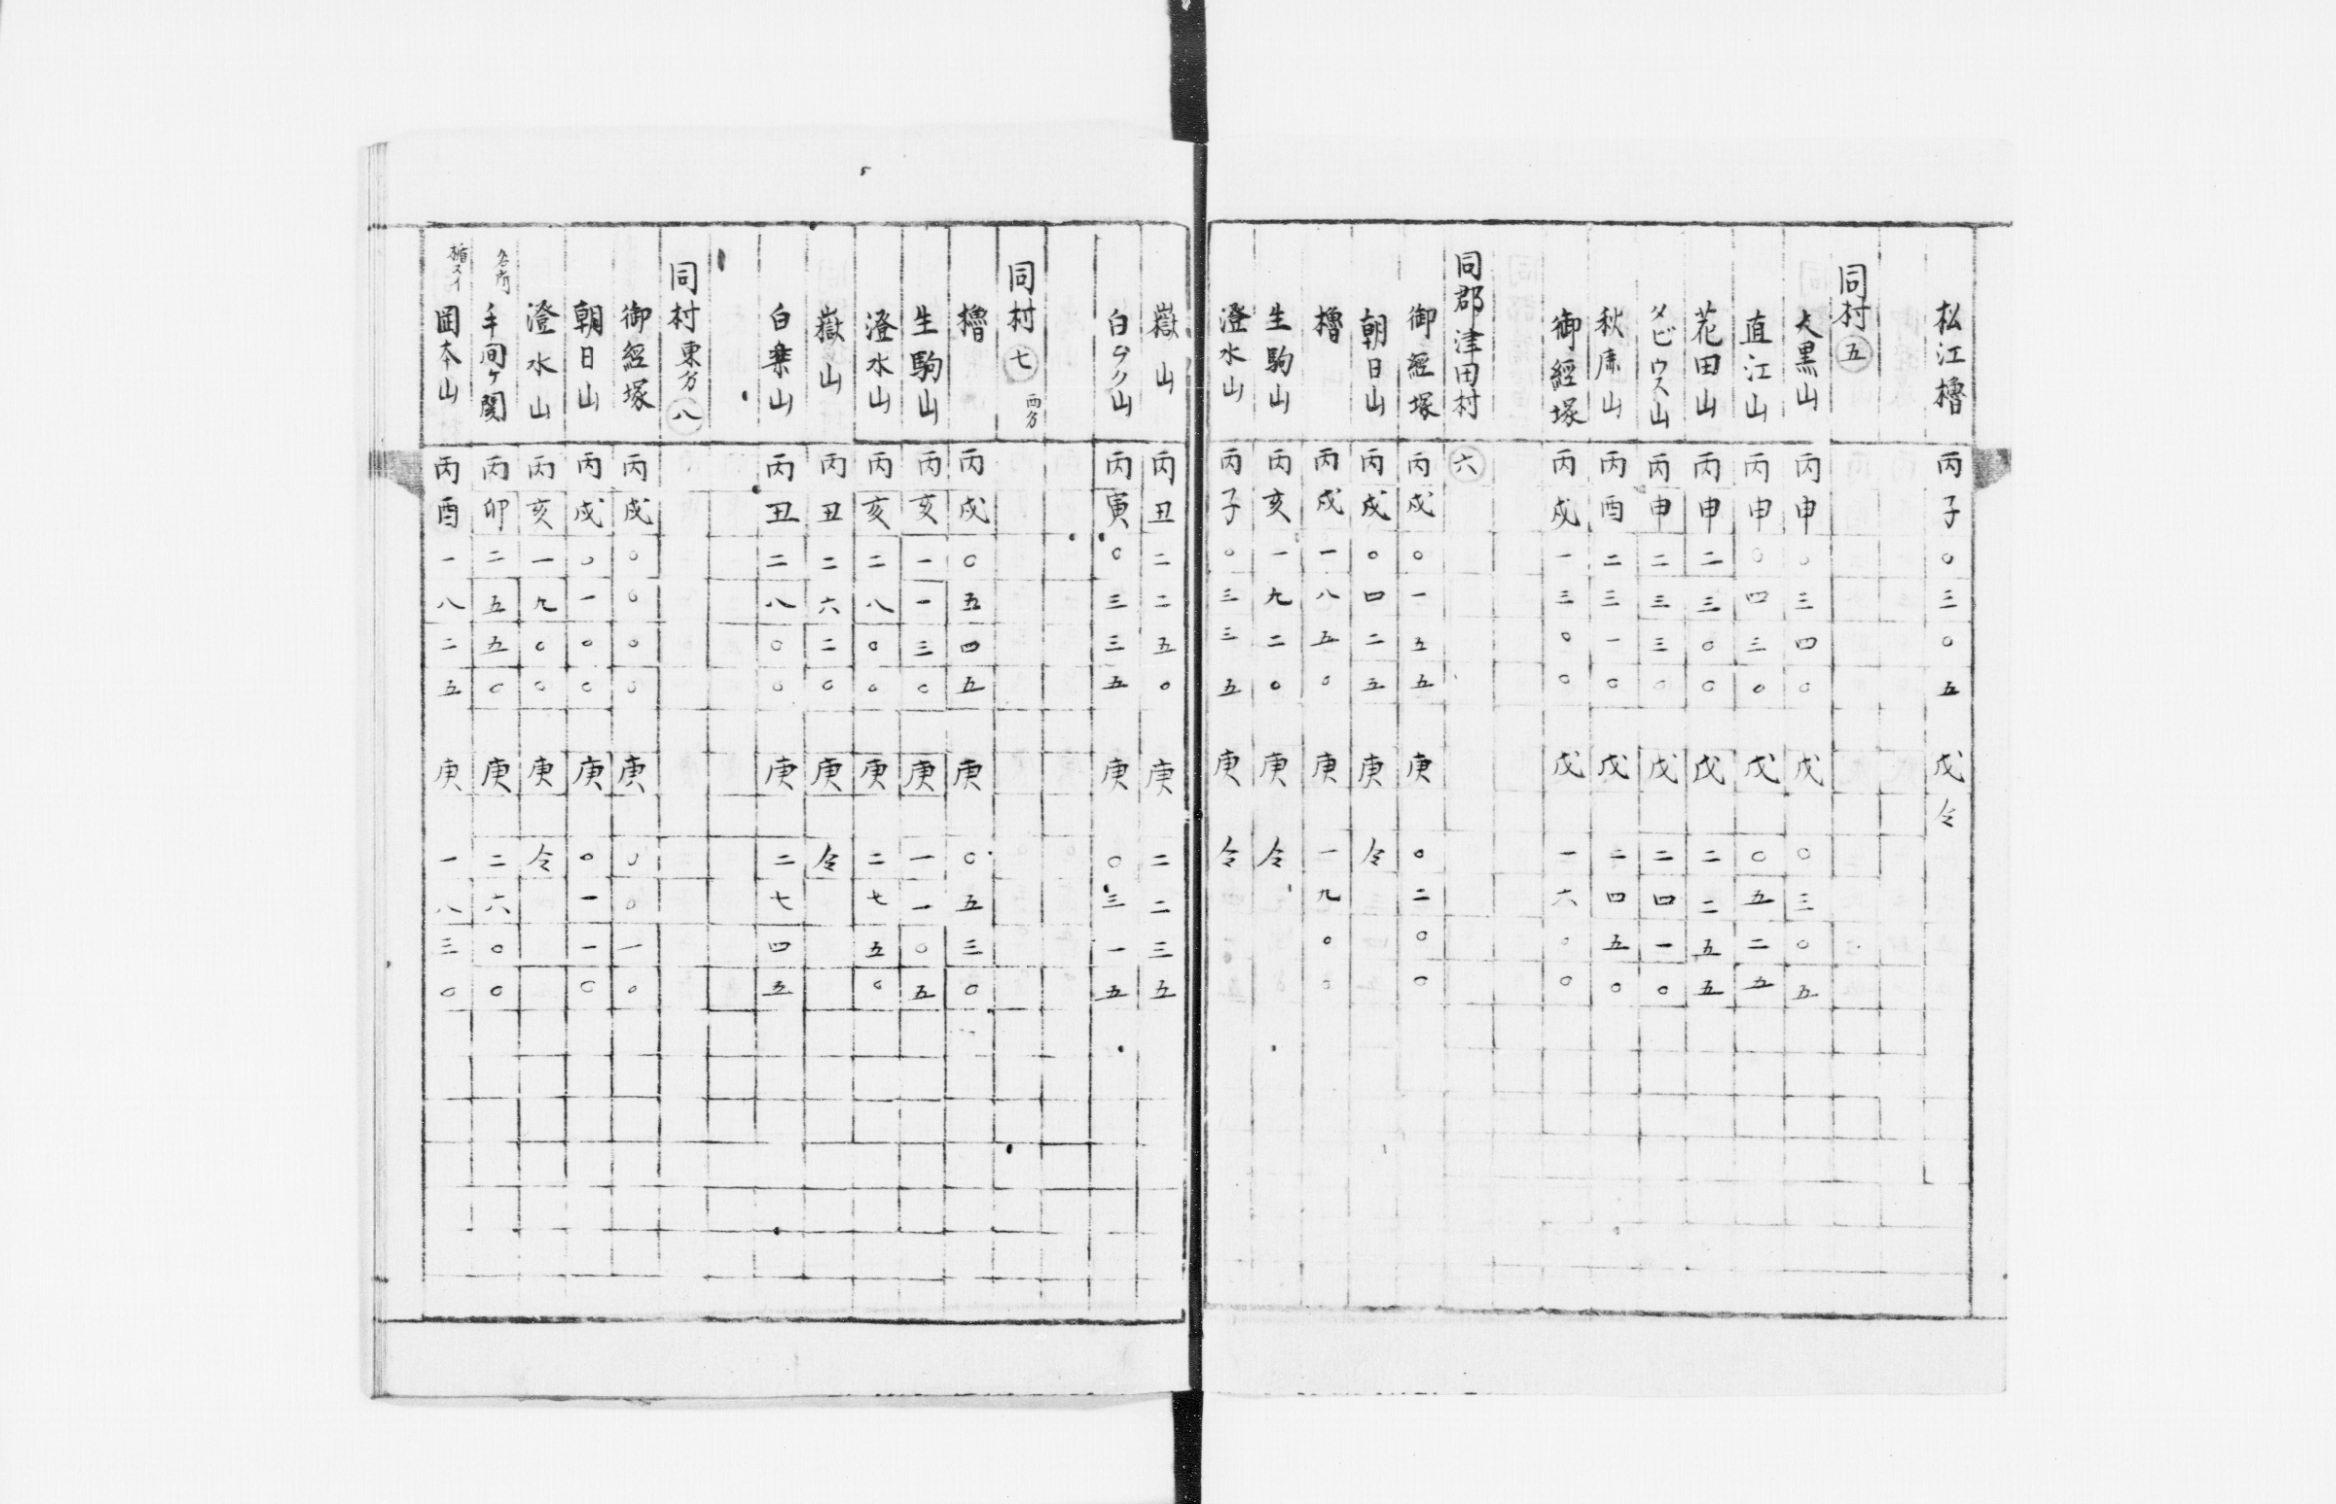 松江櫓 丙子〇三〇五 戊仝
同村 五
大黒山 丙申〇三四〇 戊〇三〇五
直江山 丙申〇四三〇 戊〇五二五
花田山 丙申二三〇〇 戊二二五五
メビウス山 丙申二三三〇 戊二四一〇
秋庸山 丙酉二三一〇 戊二四五〇
御經塚 丙戌一三〇〇 戊一六〇〇
同郡津田村 六
御經塚 丙戌〇一五五 庚〇二〇〇
朝日山 丙戌〇四二五 庚仝
櫓 丙戌一八五〇 庚一九〇〇
生駒山 丙亥一九二〇 庚仝
澄水山 丙子〇三三五 庚仝
嶽山 丙丑二二五〇 庚二二三五
白ムク山 丙寅〇三三五 庚〇三一五
同村 七 西方
櫓 丙戌〇五四五 庚〇五三〇
生駒山 丙亥一一三〇 庚一一〇五
澄水山 丙亥二八〇〇 庚二七五〇
嶽山 丙丑二六二〇 庚仝
白乗山 丙丑二八〇〇 庚二七四五
同村東方 八
御經塚 丙戌〇〇〇〇 庚〇〇一〇
朝日山 丙戌〇一〇〇 庚〇一一〇
澄水山 丙亥一九〇〇 庚仝
名所 手間ヶ関 丙卯二五五〇 庚二六〇〇
岡本山 丙酉一八二五 庚一八三〇